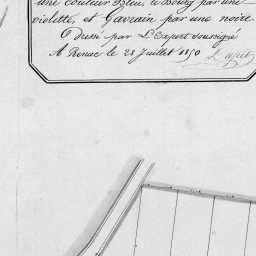 une couleur bleu, le Bourg par une
violette, et Gavrain par une noire.
Dressé par L'Expert soussigné
A Renac le 28 Juillet 1850